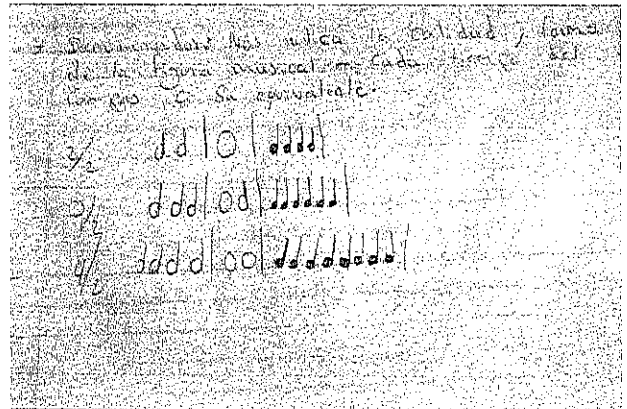 Denominador: Nos indica la calidad, forma
de la figura musical en cada tiempo del
Compas, ó Su equivalente.
2/2
3/2
4/2